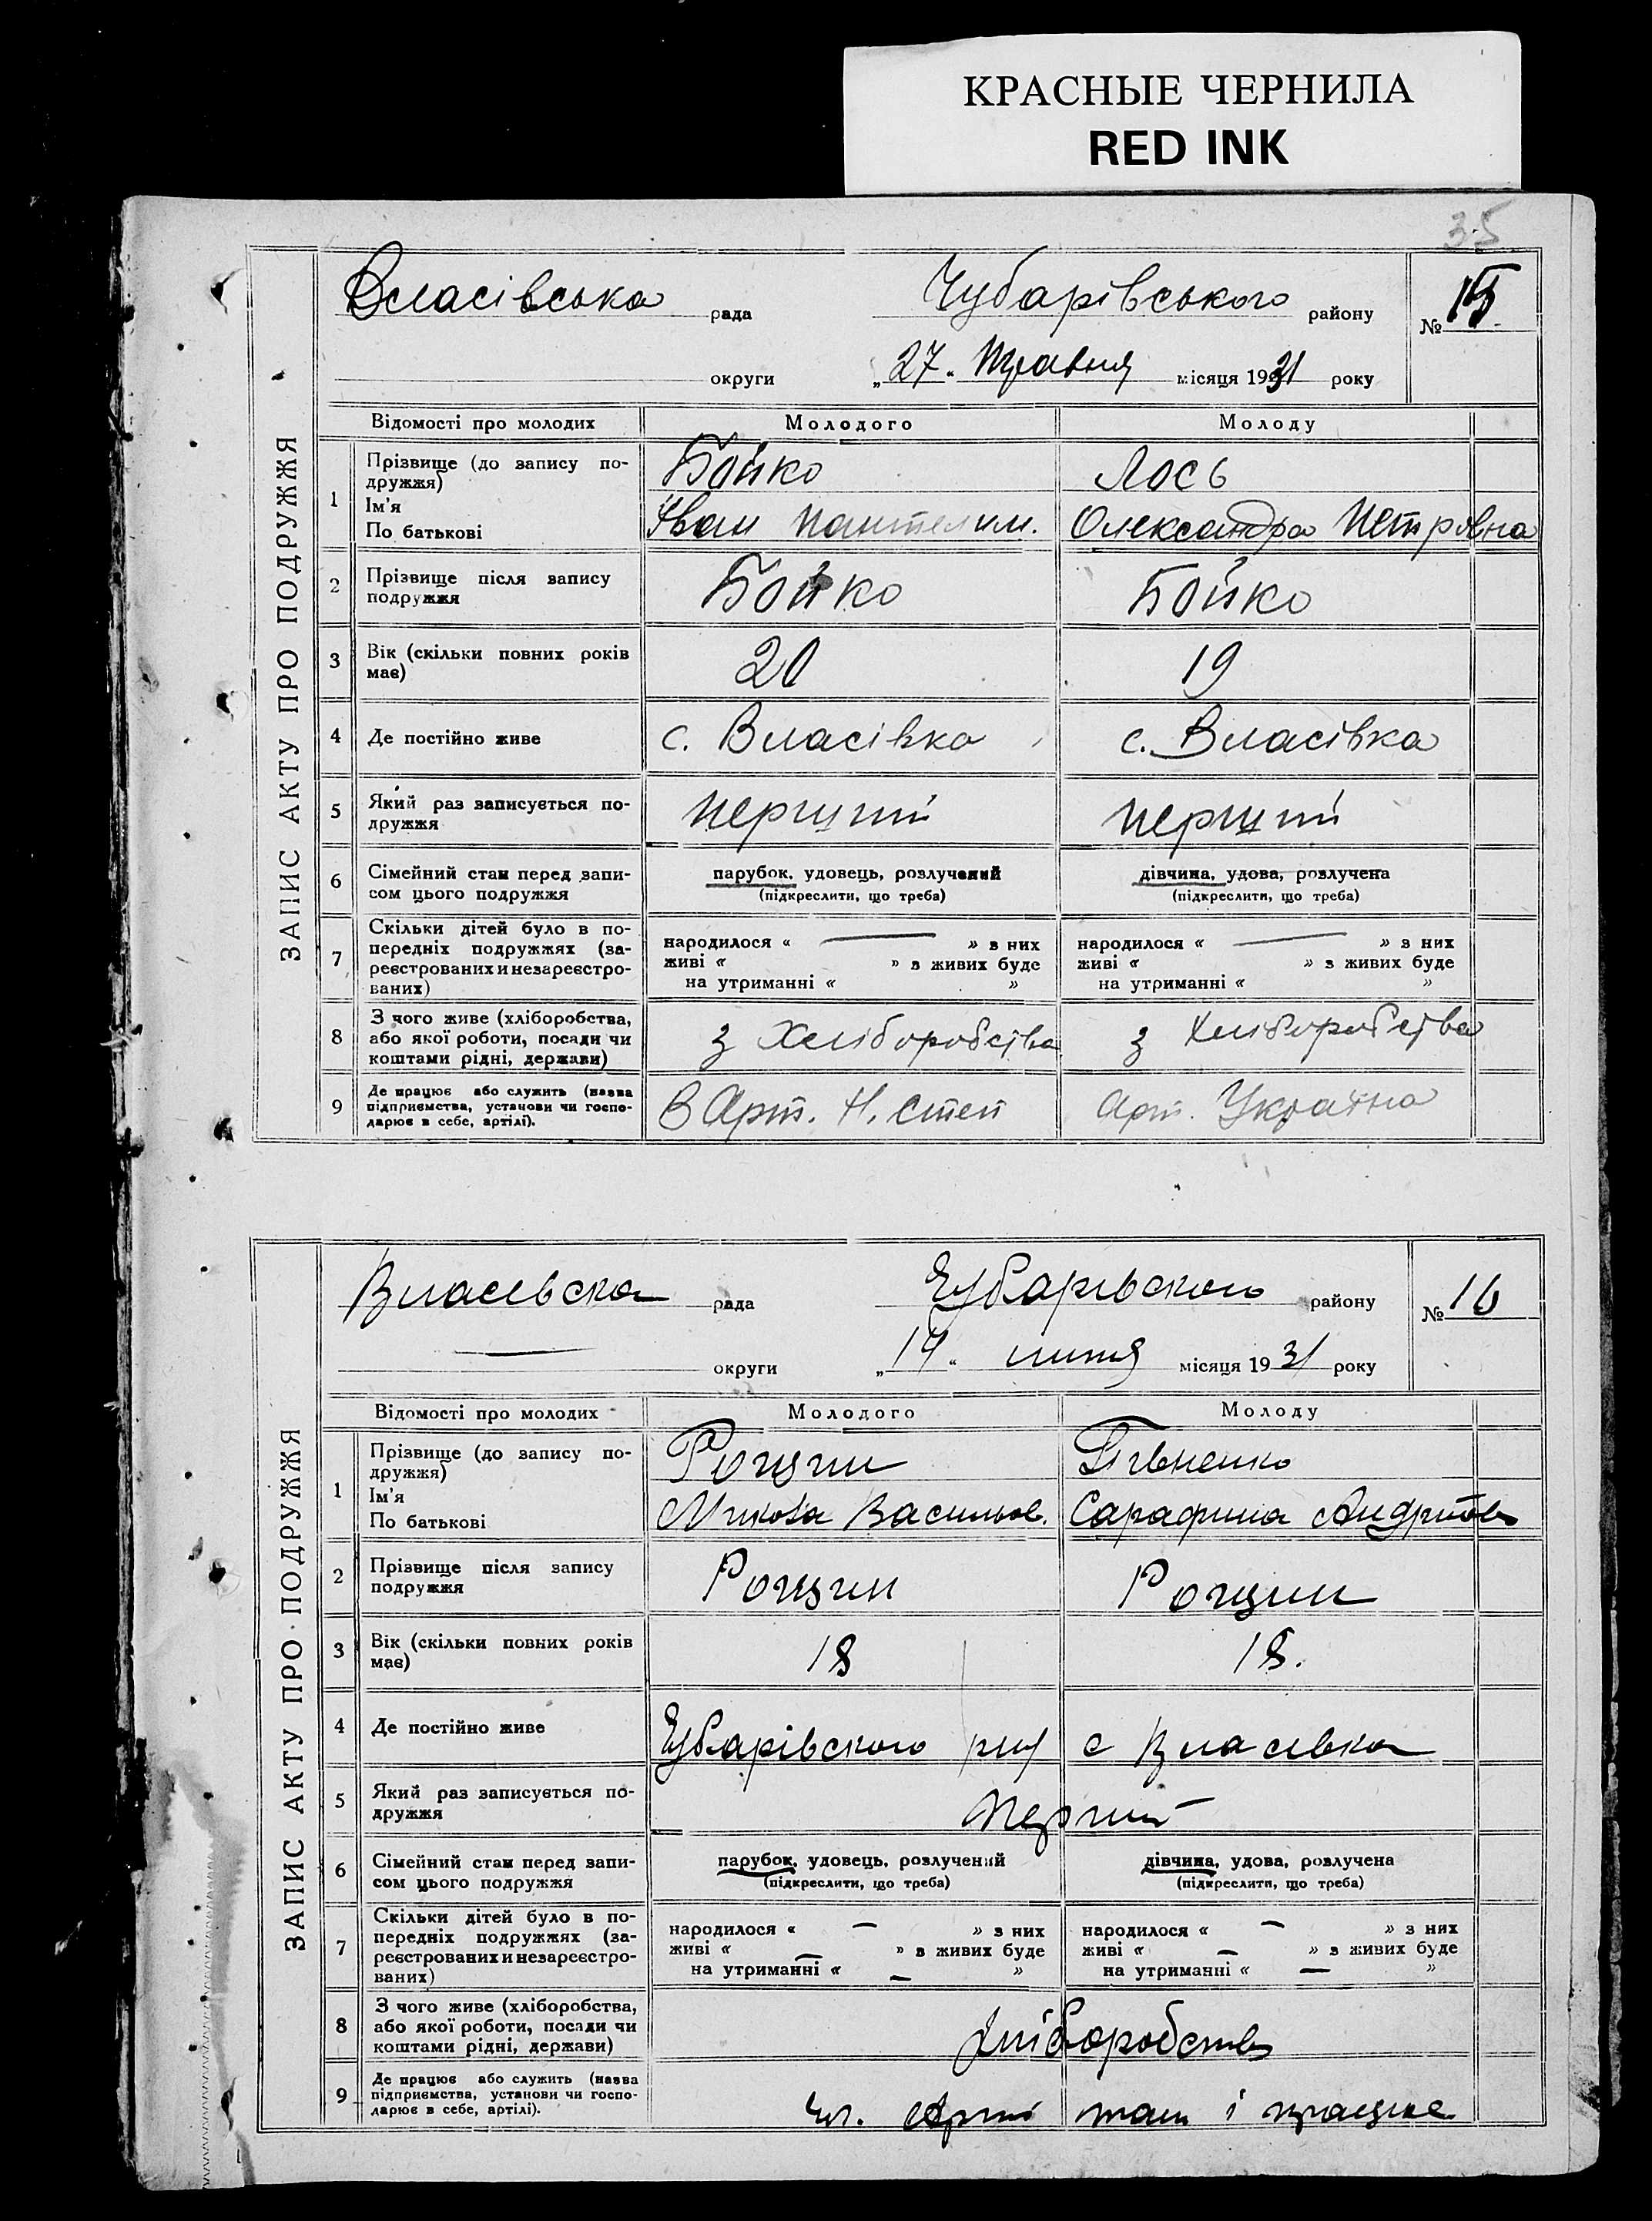 КРАСНЫЕ ЧЕРНИЛА
RED INK
35
ЗАПИС АКТУ ПРО ПОДРУЖЖЯ
Власівська рада Чубарівського району № 15
округи „27“ Травня місяця 1931 року
Відомості про молодих Молодого Молоду
1 Прізвище (до запису по-
дружжя) Бойко Лось
Ім'я
По батькові Іван Пантелим. Олександра Петрівна
2 Прізвище після запису
подружжя Бойко Бойко
3 Вік (скільки повних років
має) 20 19
4 Де постійно живе с. Власівка с. Власівка
5 Який раз записується по-
дружжя перший перший
6 Сімейний стан перед запи-
сом цього подружжя
парубок, удовець, розлучений дівчина, удова, розлучена
(підкреслити, що треба) (підкреслити, що треба)
7 Скільки дітей було в по-
передніх подружжях (за-
реєстрованих и незареєстро-
ваних)
народилося « — » з них народилося « — » з них
живі « » з живих буде живі « » з живих буде
на утриманні « » на утриманні « »
8 З чого живе (хліборобства,
або якої роботи, посади чи
коштами рідні, держави) з Хліборобства з Хліборобства
9 Де працює або служить (назва
підприємства, установи чи госпо-
дарює в себе, артілі). В Арт. Н. Степ Арт. Україна
ЗАПИС АКТУ ПРО ПОДРУЖЖЯ
Власевска рада Чубарівского району № 16
— округи „14“ липня місяця 1931 року
Відомості про молодих Молодого Молоду
1 Прізвище (до запису по-
дружжя) Рощин Півненко
Ім'я
По батькові Микола Васильов. Сарафина
2 Прізвище після запису
подружжя Рощин Рощин
3 Вік (скільки повних років
має) 18 18.
4 Де постійно живе Чубарівского с Власівка
5 Який раз записується по-
дружжя Перший
6 Сімейний стан перед запи-
сом цього подружжя
парубок, удовець, розлучений дівчина, удова, розлучена
(підкреслити, що треба) (підкреслити, що треба)
7 Скільки дітей було в по-
передніх подружжях (за-
реєстрованих и незареєстро-
ваних)
народилося « — » з них народилося « — » з них
живі « — » з живих буде живі « — » з живих буде
на утриманні « — » на утриманні « — »
8 З чого живе (хліборобства,
або якої роботи, посади чи
коштами рідні, держави) Хліборобства
9 Де працює або служить (назва
підприємства, установи чи госпо-
дарює в себе, артілі). Чл. Артілі там і працює